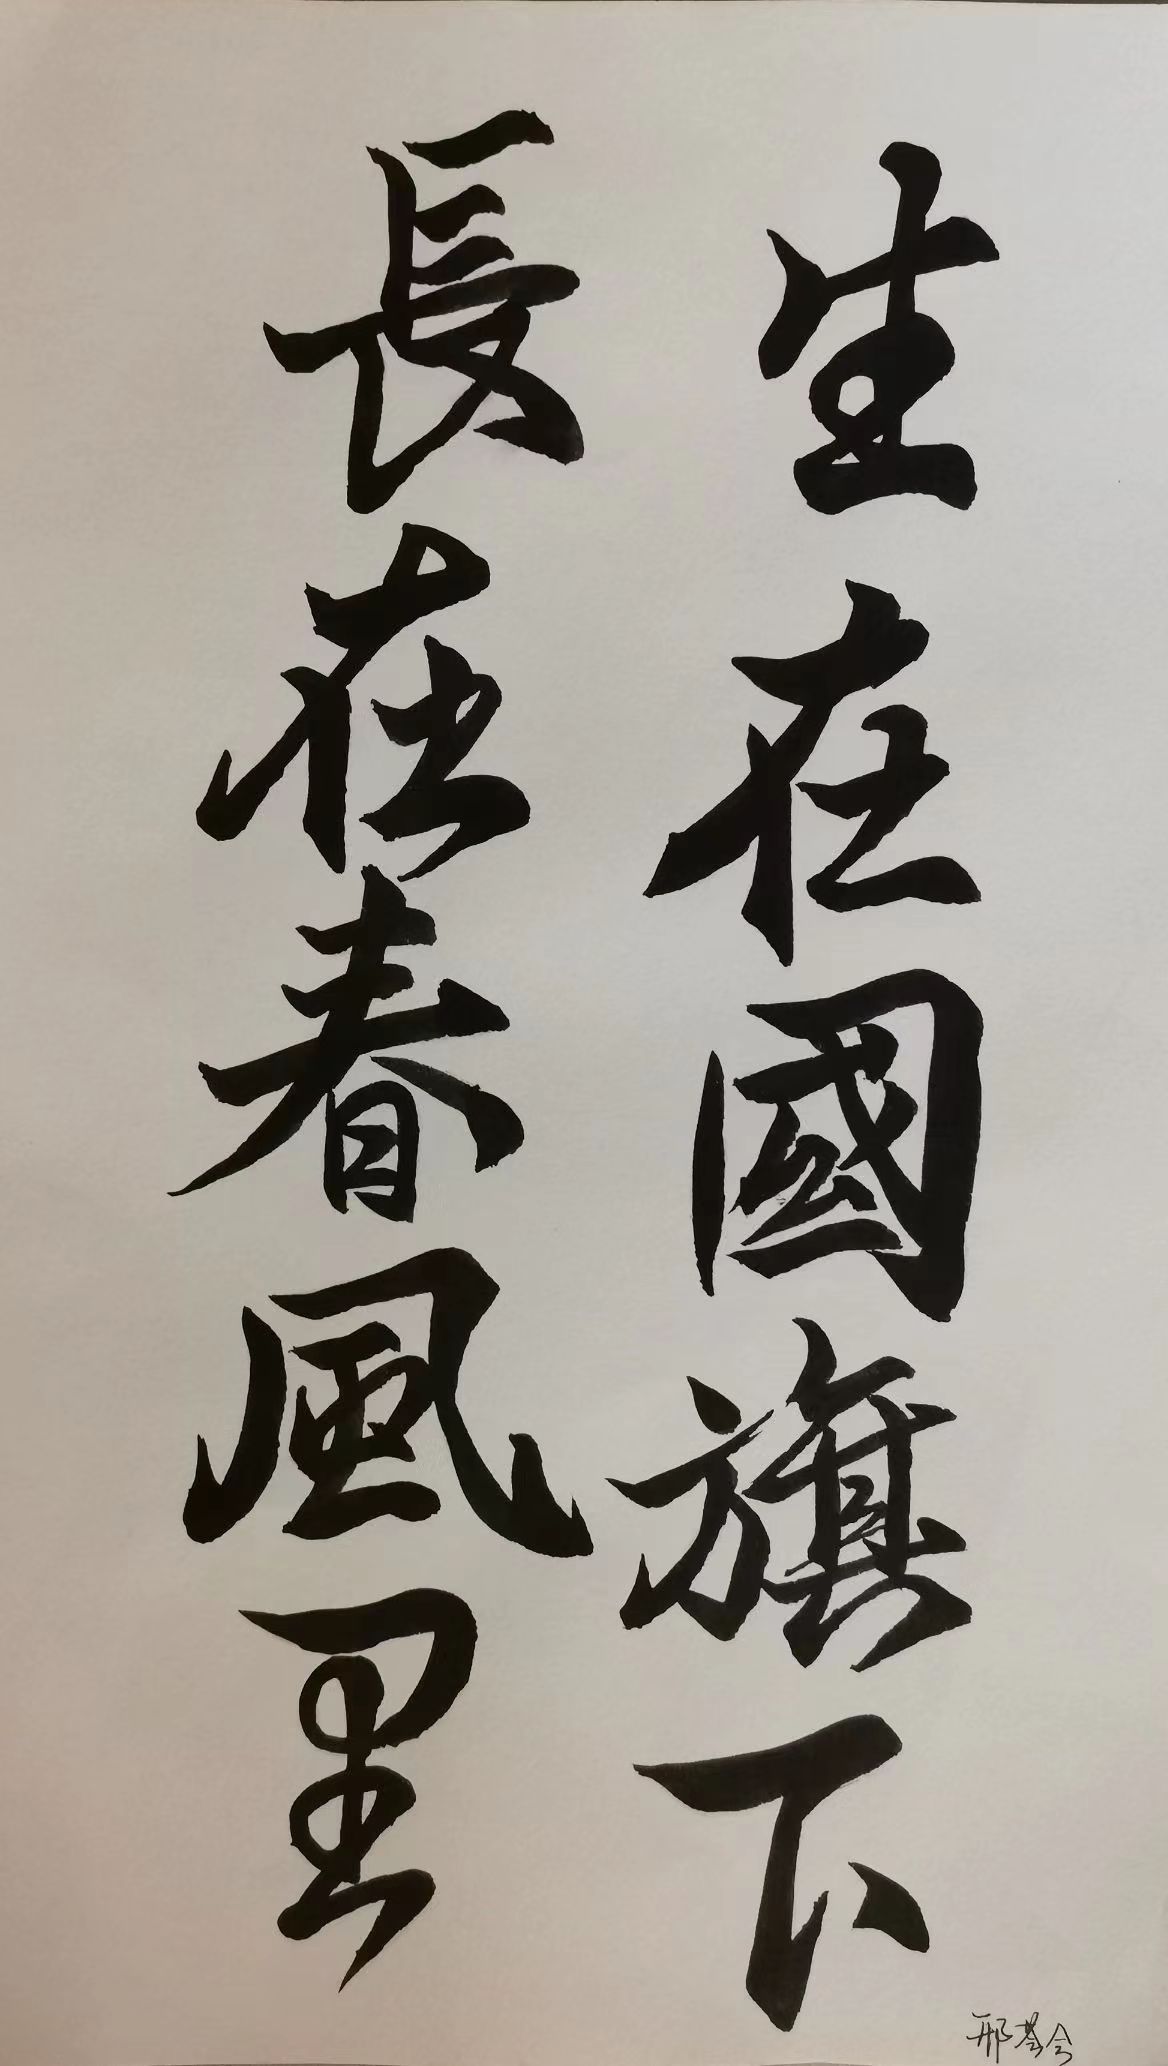 生在國旗下
長在春風里